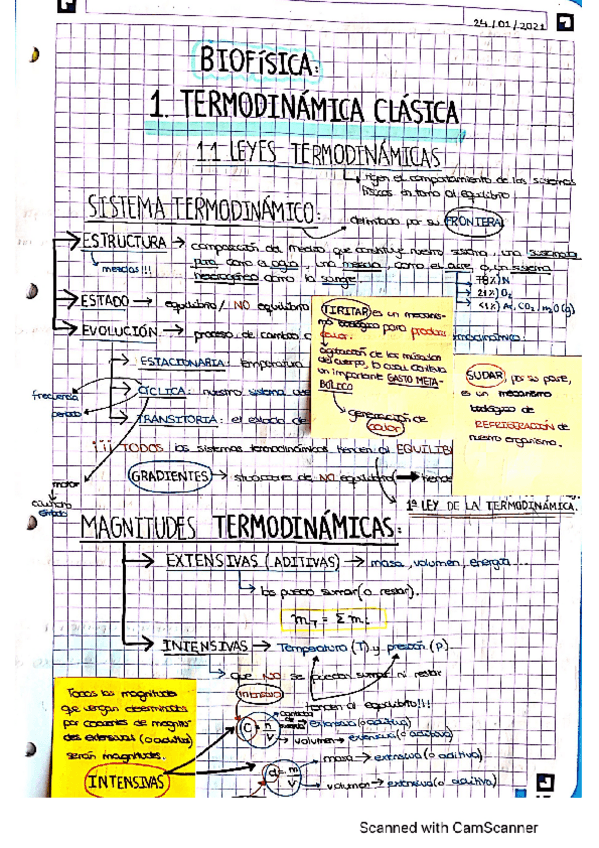 24/01/2021
BIOFÍSICA:
1. TERMODINÁMICA CLÁSICA
1.1 LEYES TERMODINÁMICAS
rigen el comportamiento de los sistemas
físicos en torno al equilibrio
SISTEMA TERMODINÁMICO:
delimitado por su FRONTERA
ESTRUCTURA → composición del medio que constituye nuestro sistema, una sustancia
pura como el agua, una mezcla, como el aire o un sistema
mezclas!!!
como la sangre.
78% N
21% O2
<1% Ar, CO2, H2O(g)
ESTADO → equilibrio / NO equilibrio
EVOLUCIÓN → proceso de cambio
TIRITAR es un mecanis-
mo biológico para producir
calor.
agitación de los músculos
del cuerpo, lo cual conlleva
un importante GASTO META-
BÓLICO
generación de
calor
SUDAR, por su parte,
es un mecanismo
biológico de
REFRIGERACIÓN de
nuestro organismo.
ESTACIONARIA: temperatura
frecuencia
periodo
CÍCLICA: nuestro sistema
TRANSITORIA: el estado de
¡¡¡TODOS los sistemas termodinámicos tienden al EQUILIB
GRADIENTES → situaciones de NO equilibrio
motor
1ª LEY DE LA TERMODINÁMICA.
MAGNITUDES TERMODINÁMICAS:
EXTENSIVAS (ADITIVAS) → masa, volumen, energía...
las puedo sumar (o restar).
mT = Σ mi
INTENSIVAS → Temperatura (T) y presión (P).
que NO se puedan sumar ni restar
Intensiva
tienden al equilibrio!!!
Todas las magnitudes
que vengan determinadas
por cocientes de magnitu-
des extensivas (o aditivas)
serán magnitudes.
INTENSIVAS
C = n/V
cantidad de
→ extensiva (o aditiva)
volumen → extensiva (o aditiva)
d = m/V
masa → extensiva (o aditiva)
volumen → extensiva (o aditiva)
Scanned with CamScanner